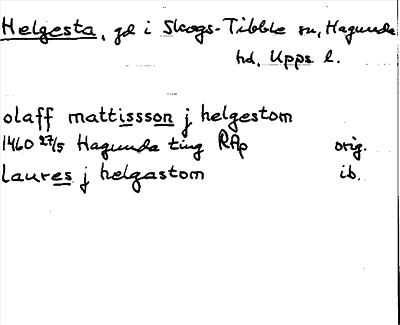 Helgesta, gd i Skogs-Tibble sn, Hagunda
hd, Upps l.
olaff mattissson j helgestom
1460 27/5 Hagunda ting RAp orig.
laures j helgastom ib.